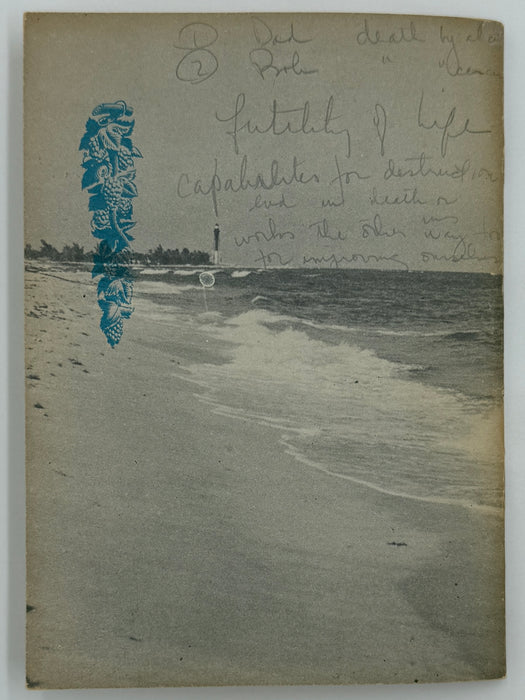 ① Dad death by
② Bob " "
futility of Life
capabalites for destruction
end in death or
works the other way
for improving ourselves